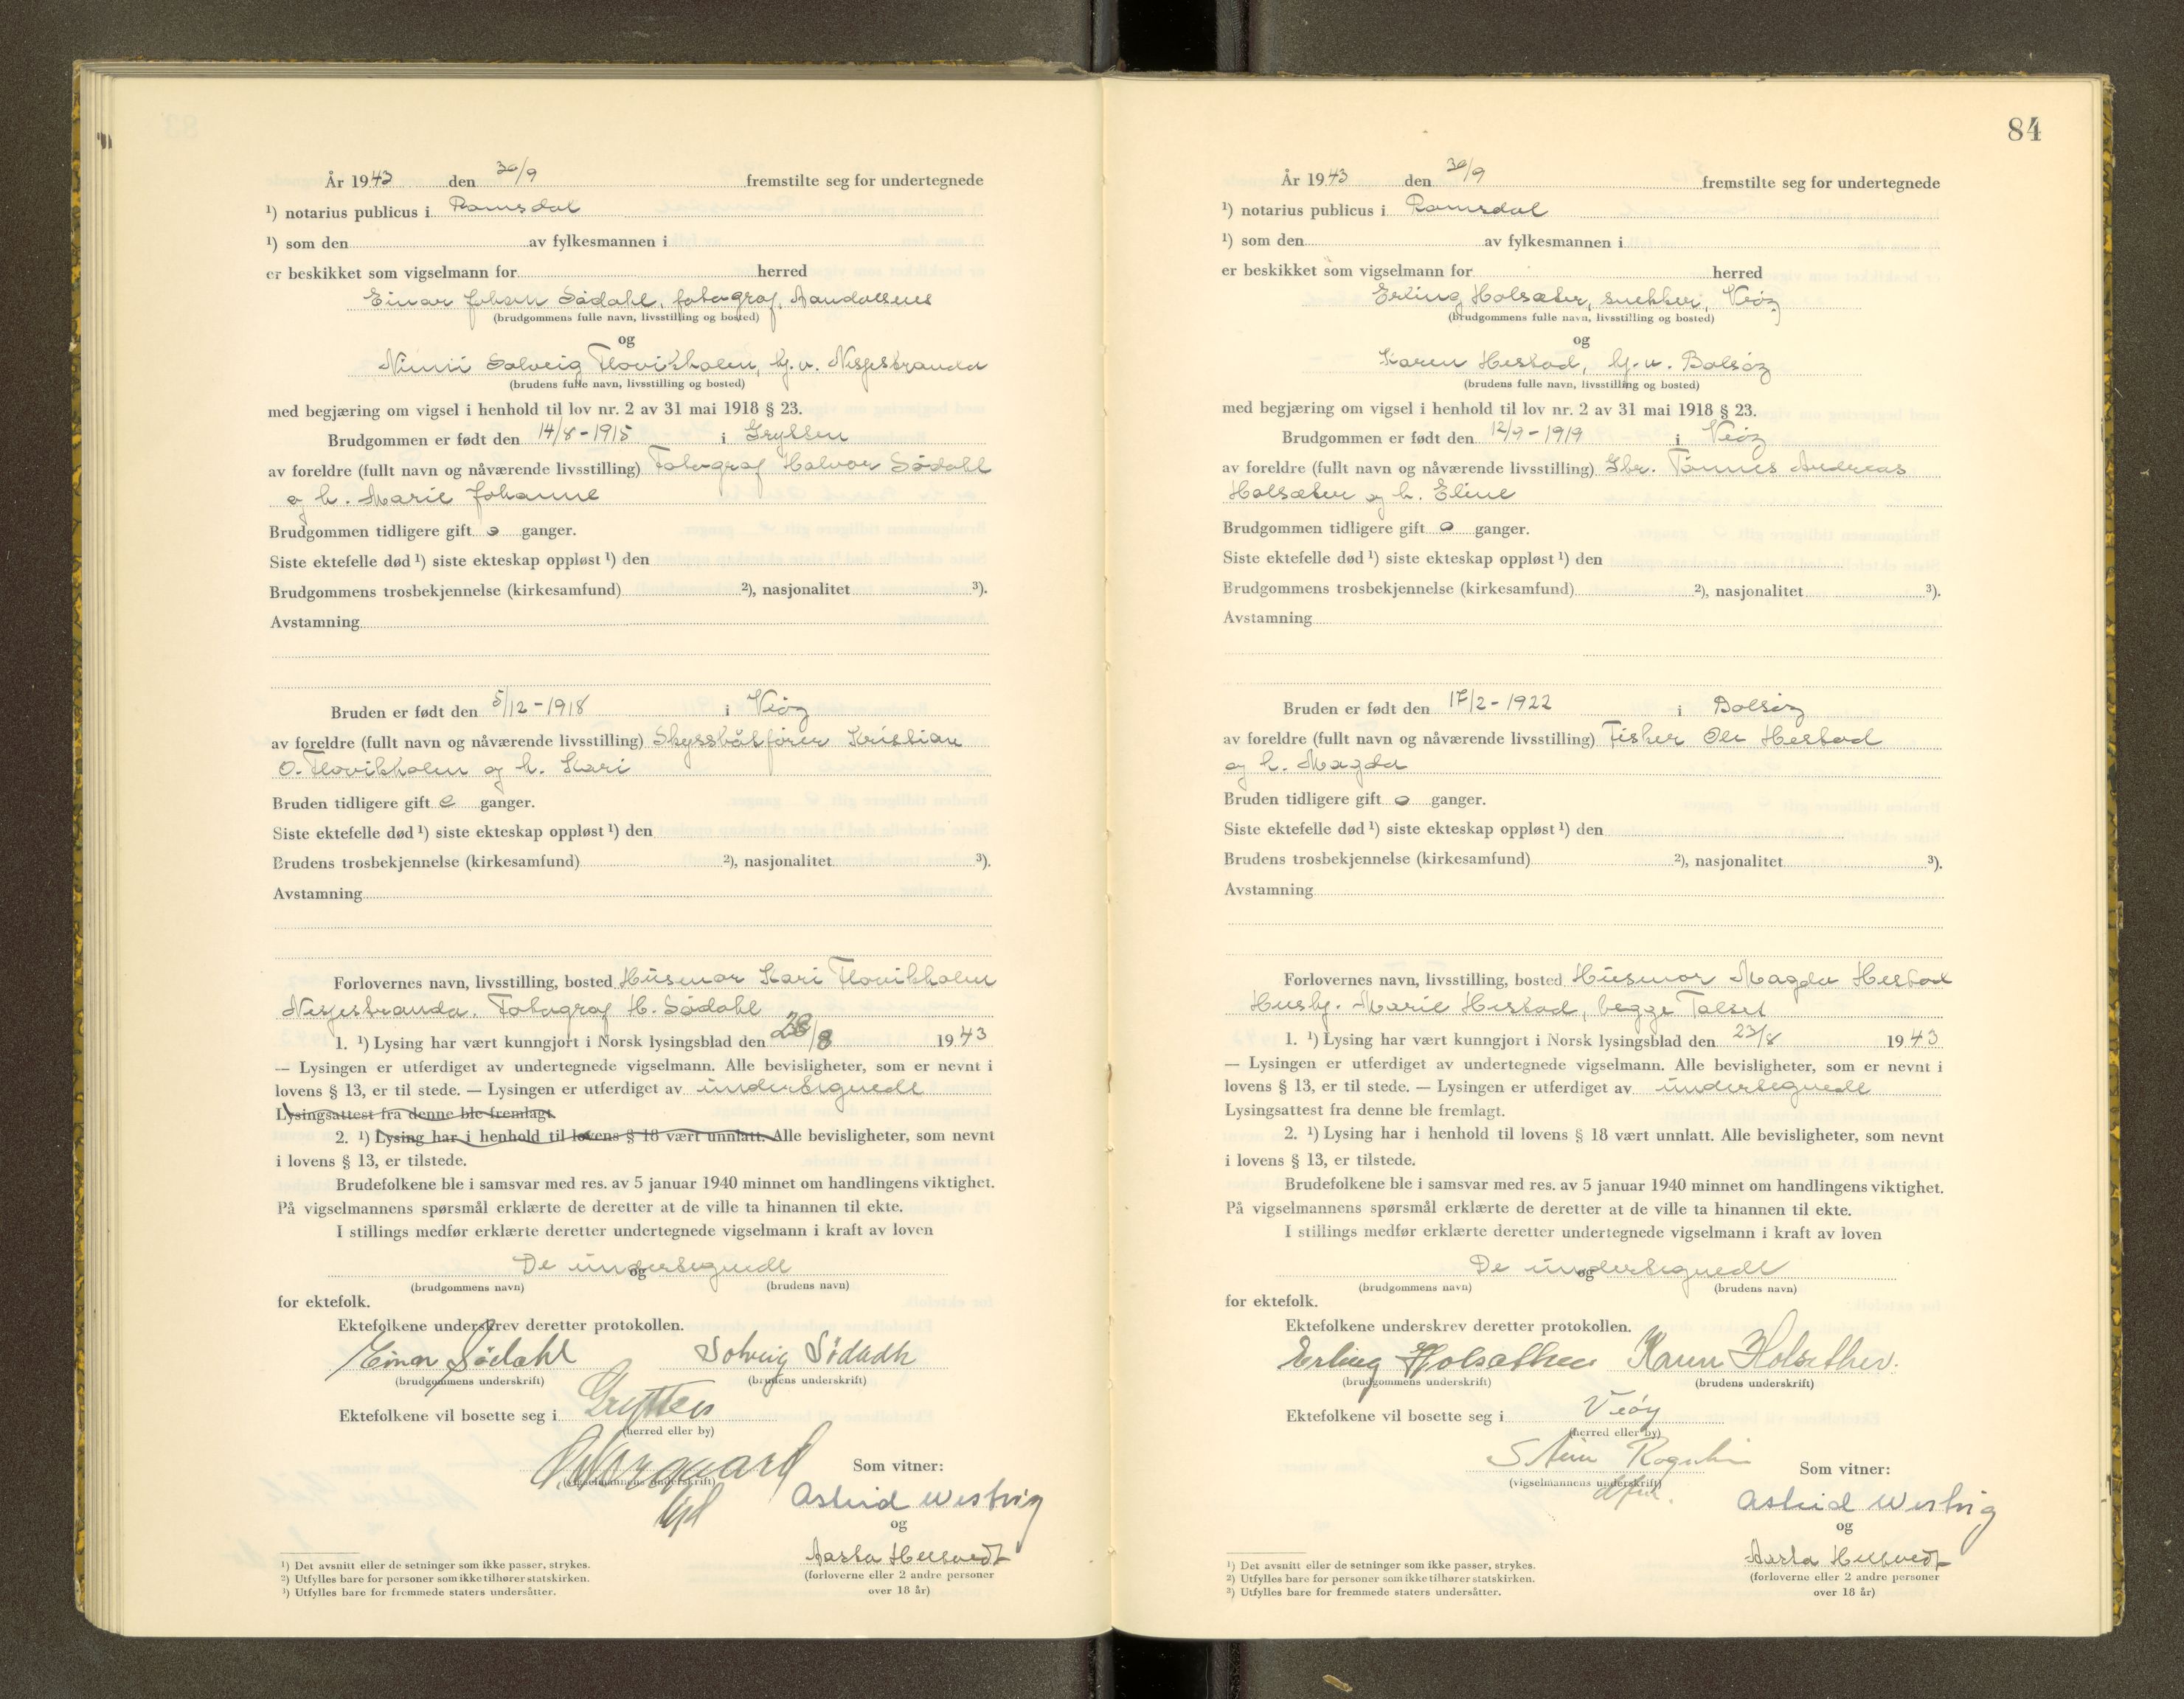 År 1943 den 30/9 fremstilte seg for undertegnede
¹) notarius publicus i Romsdal
¹) som den av fylkesmannen i
er beskikket som vigselmann for herred
Einar Johan Sødahl, fotograf, Aandalsnes
(brudgommens fulle navn, livsstilling og bosted)
og
Nimi Solveig Flovikholm, hj.v. Nesjestranda
(brudens fulle navn, livsstilling og bosted)
med begjæring om vigsel i henhold til lov nr. 2 av 31 mai 1918 § 23.
Brudgommen er født den 14/8-1915 i Grytten
av foreldre (fullt navn og nåværende livsstilling) Fotograf Halvor Sødahl
og h. Marie Johanne
Brudgommen tidligere gift 0 ganger.
Siste ektefelle død ¹) siste ekteskap oppløst ¹) den
Brudgommens trosbekjennelse (kirkesamfund) ²), nasjonalitet ³).
Avstamning
Bruden er født den 5/12-1918 i Veøy
av foreldre (fullt navn og nåværende livsstilling) Skyssbåtfører Kristian
O. Flovikholm og h. Kari
Bruden tidligere gift 0 ganger.
Siste ektefelle død ¹) siste ekteskap oppløst ¹) den
Brudens trosbekjennelse (kirkesamfund) ²), nasjonalitet ³).
Avstamning
Forlovernes navn, livsstilling, bosted Husmor Kari Flovikholm
Nesjestranda. Fotograf H. Sødahl
1. ¹) Lysing har vært kunngjort i Norsk lysingsblad den 28/8 1943
— Lysingen er utferdiget av undertegnede vigselmann. Alle bevisligheter, som er nevnt i
lovens § 13, er til stede. — Lysingen er utferdiget av undertegnede
Lysingsattest fra denne ble fremlagt.
2. ¹) Lysing har i henhold til lovens § 18 vært unnlatt. Alle bevisligheter, som nevnt
i lovens § 13, er tilstede.
Brudefolkene ble i samsvar med res. av 5 januar 1940 minnet om handlingens viktighet.
På vigselmannens spørsmål erklærte de deretter at de ville ta hinannen til ekte.
I stillings medfør erklærte deretter undertegnede vigselmann i kraft av loven
De undertegnede
og
(brudgommens navn) (brudens navn)
for ektefolk.
Ektefolkene underskrev deretter protokollen.
Einar Sødahl Solveig Södadh
(brudgommens underskrift) (brudens underskrift)
Ektefolkene vil bosette seg i Grytten
(herred eller by)
(vigselmannens underskrift)
Som vitner:
Astrid Westvig
og
Aasta Hellevedt
(forloverne eller 2 andre personer
over 18 år)
¹) Det avsnitt eller de setninger som ikke passer, strykes.
²) Utfylles bare for personer som ikke tilhører statskirken.
³) Utfylles bare for fremmede staters undersåtter.
84
År 1943 den 30/9 fremstilte seg for undertegnede
¹) notarius publicus i Romsdal
¹) som den av fylkesmannen i
er beskikket som vigselmann for herred
Erling Holsæter, snekker, Veøy
(brudgommens fulle navn, livsstilling og bosted)
og
Karen Hestad, hj.v. Bolsøy
(brudens fulle navn, livsstilling og bosted)
med begjæring om vigsel i henhold til lov nr. 2 av 31 mai 1918 § 23.
Brudgommen er født den 12/9-1919 i Veøy
av foreldre (fullt navn og nåværende livsstilling) Gbr. Tønnes Andreas
Holsæter og h. Eline
Brudgommen tidligere gift 0 ganger.
Siste ektefelle død ¹) siste ekteskap oppløst ¹) den
Brudgommens trosbekjennelse (kirkesamfund) ²), nasjonalitet ³).
Avstamning
Bruden er født den 17/2-1922 i Bolsøy
av foreldre (fullt navn og nåværende livsstilling) Fisker Ole Hestad
og h. Magda
Bruden tidligere gift 0 ganger.
Siste ektefelle død ¹) siste ekteskap oppløst ¹) den
Brudens trosbekjennelse (kirkesamfund) ²), nasjonalitet ³).
Avstamning
Forlovernes navn, livsstilling, bosted Husmor Magda Hestad
Hushj. Marie Hestad, begge Talset
1. ¹) Lysing har vært kunngjort i Norsk lysingsblad den 23/8 1943
— Lysingen er utferdiget av undertegnede vigselmann. Alle bevisligheter, som er nevnt i
lovens § 13, er til stede. — Lysingen er utferdiget av undertegnede
Lysingsattest fra denne ble fremlagt.
2. ¹) Lysing har i henhold til lovens § 18 vært unnlatt. Alle bevisligheter, som nevnt
i lovens § 13, er tilstede.
Brudefolkene ble i samsvar med res. av 5 januar 1940 minnet om handlingens viktighet.
På vigselmannens spørsmål erklærte de deretter at de ville ta hinannen til ekte.
I stillings medfør erklærte deretter undertegnede vigselmann i kraft av loven
De undertegnede
og
(brudgommens navn) (brudens navn)
for ektefolk.
Ektefolkene underskrev deretter protokollen.
Erling Holsæther Karen Holsether.
(brudgommens underskrift) (brudens underskrift)
Ektefolkene vil bosette seg i Veøy
(herred eller by)
(vigselmannens underskrift)
Som vitner:
Astrid Westvig
og
Aasta Hellevedt
(forloverne eller 2 andre personer
over 18 år)
¹) Det avsnitt eller de setninger som ikke passer, strykes.
²) Utfylles bare for personer som ikke tilhører statskirken.
³) Utfylles bare for fremmede staters undersåtter.